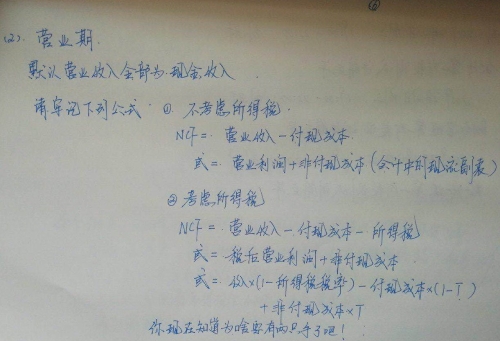 (2). 营业期.
默认营业收入全部为现金收入.
请牢记下列公式. ① 不考虑所得税.
NCF = 营业收入 - 付现成本.
或 = 营业利润 + 非付现成本 (会计中的现流副表)
② 考虑所得税
NCF = 营业收入 - 付现成本 - 所得税
或 = 税后营业利润 + 非付现成本.
或 = 收入×(1-所得税税率) - 付现成本×(1-T)
+ 非付现成本×T
你现在知道为啥要有两只手了吧!